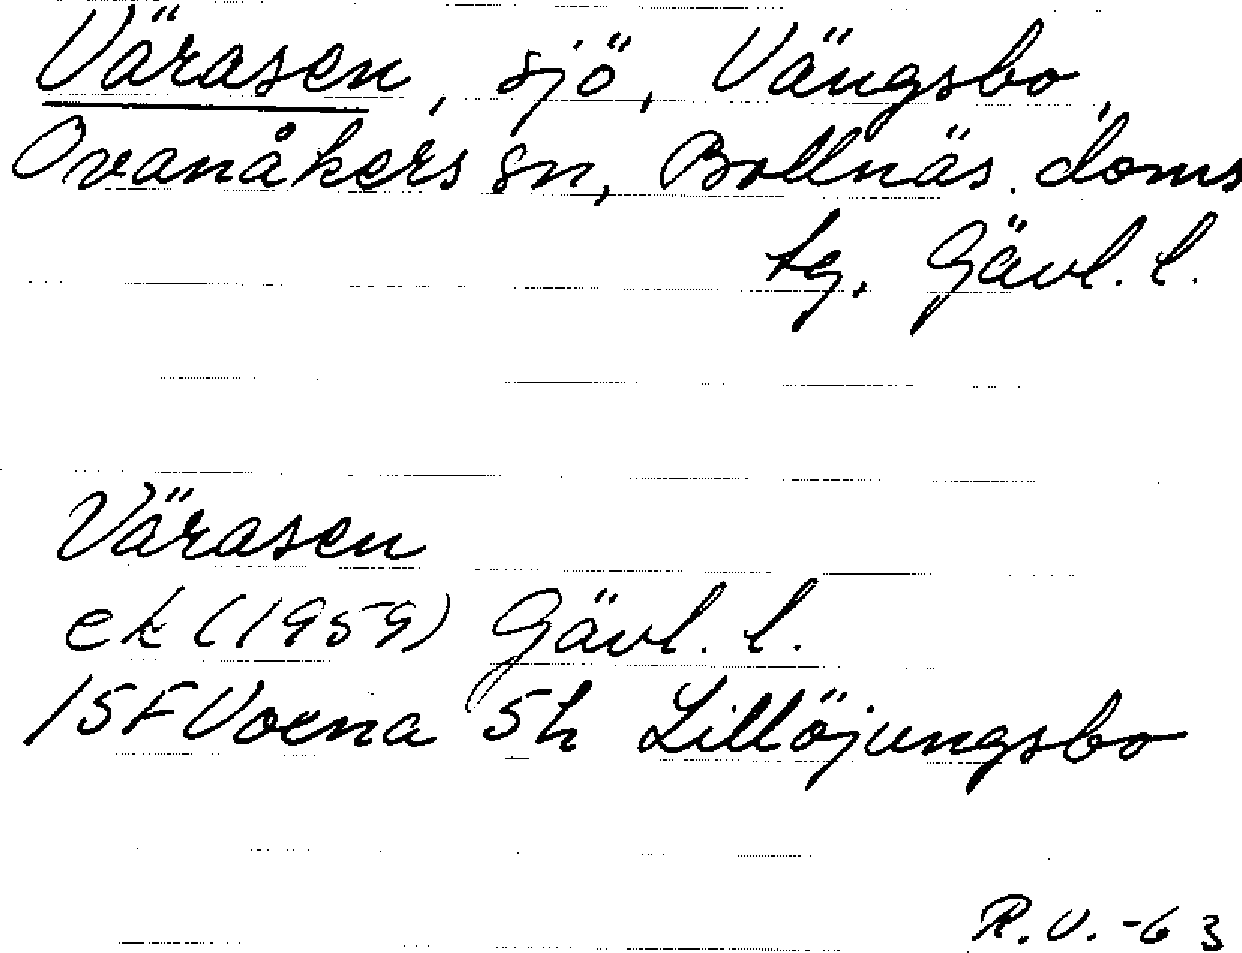 Värasen, sjö, Vängsbo,
Ovanåkers sn, Bollnäs doms
tg. Gävl. l.
Värasen
ek (1959) Gävl. l.
15F Voxna 5h Lillöjungsbo
R.V. -63